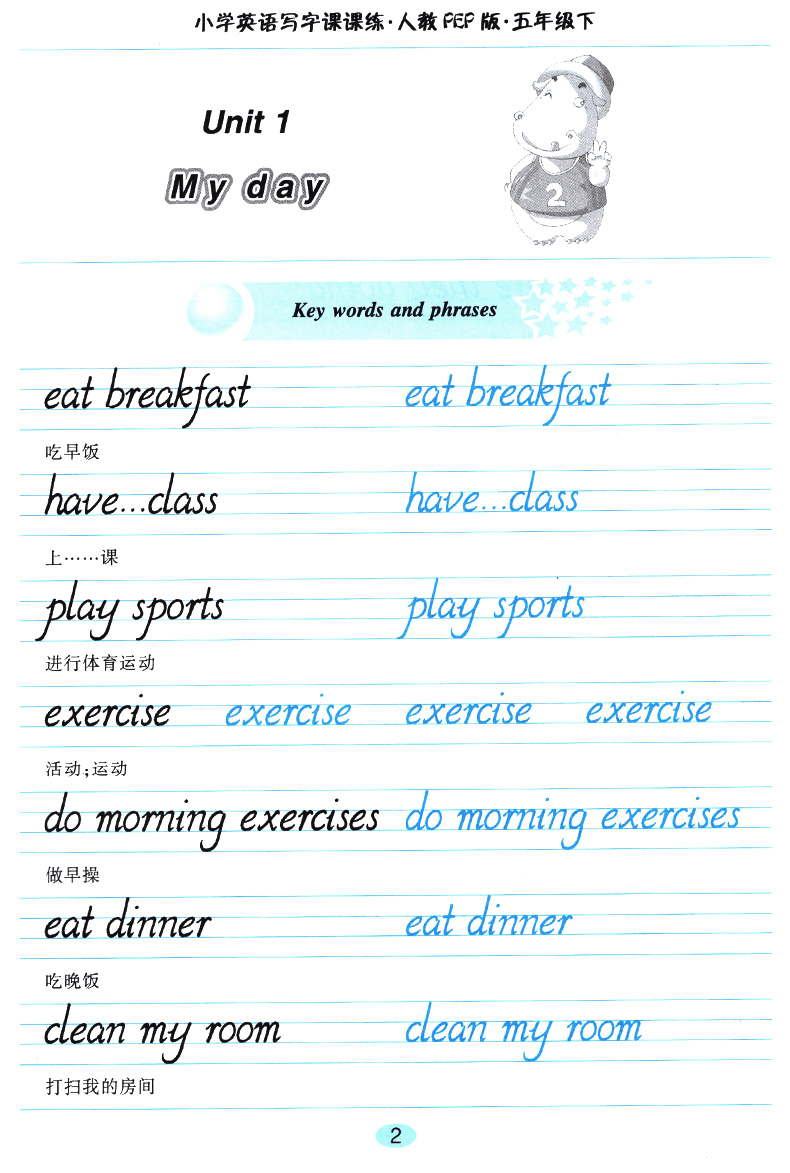 小学英语写字课课练·人教PEP版·五年级下
Unit 1
My day
2
Key words and phrases
eat breakfast eat breakfast
吃早饭
have...class have...class
上……课
play sports play sports
进行体育运动
exercise exercise exercise exercise
活动;运动
do morning exercises do morning exercises
做早操
eat dinner eat dinner
吃晚饭
clean my room clean my room
打扫我的房间
2